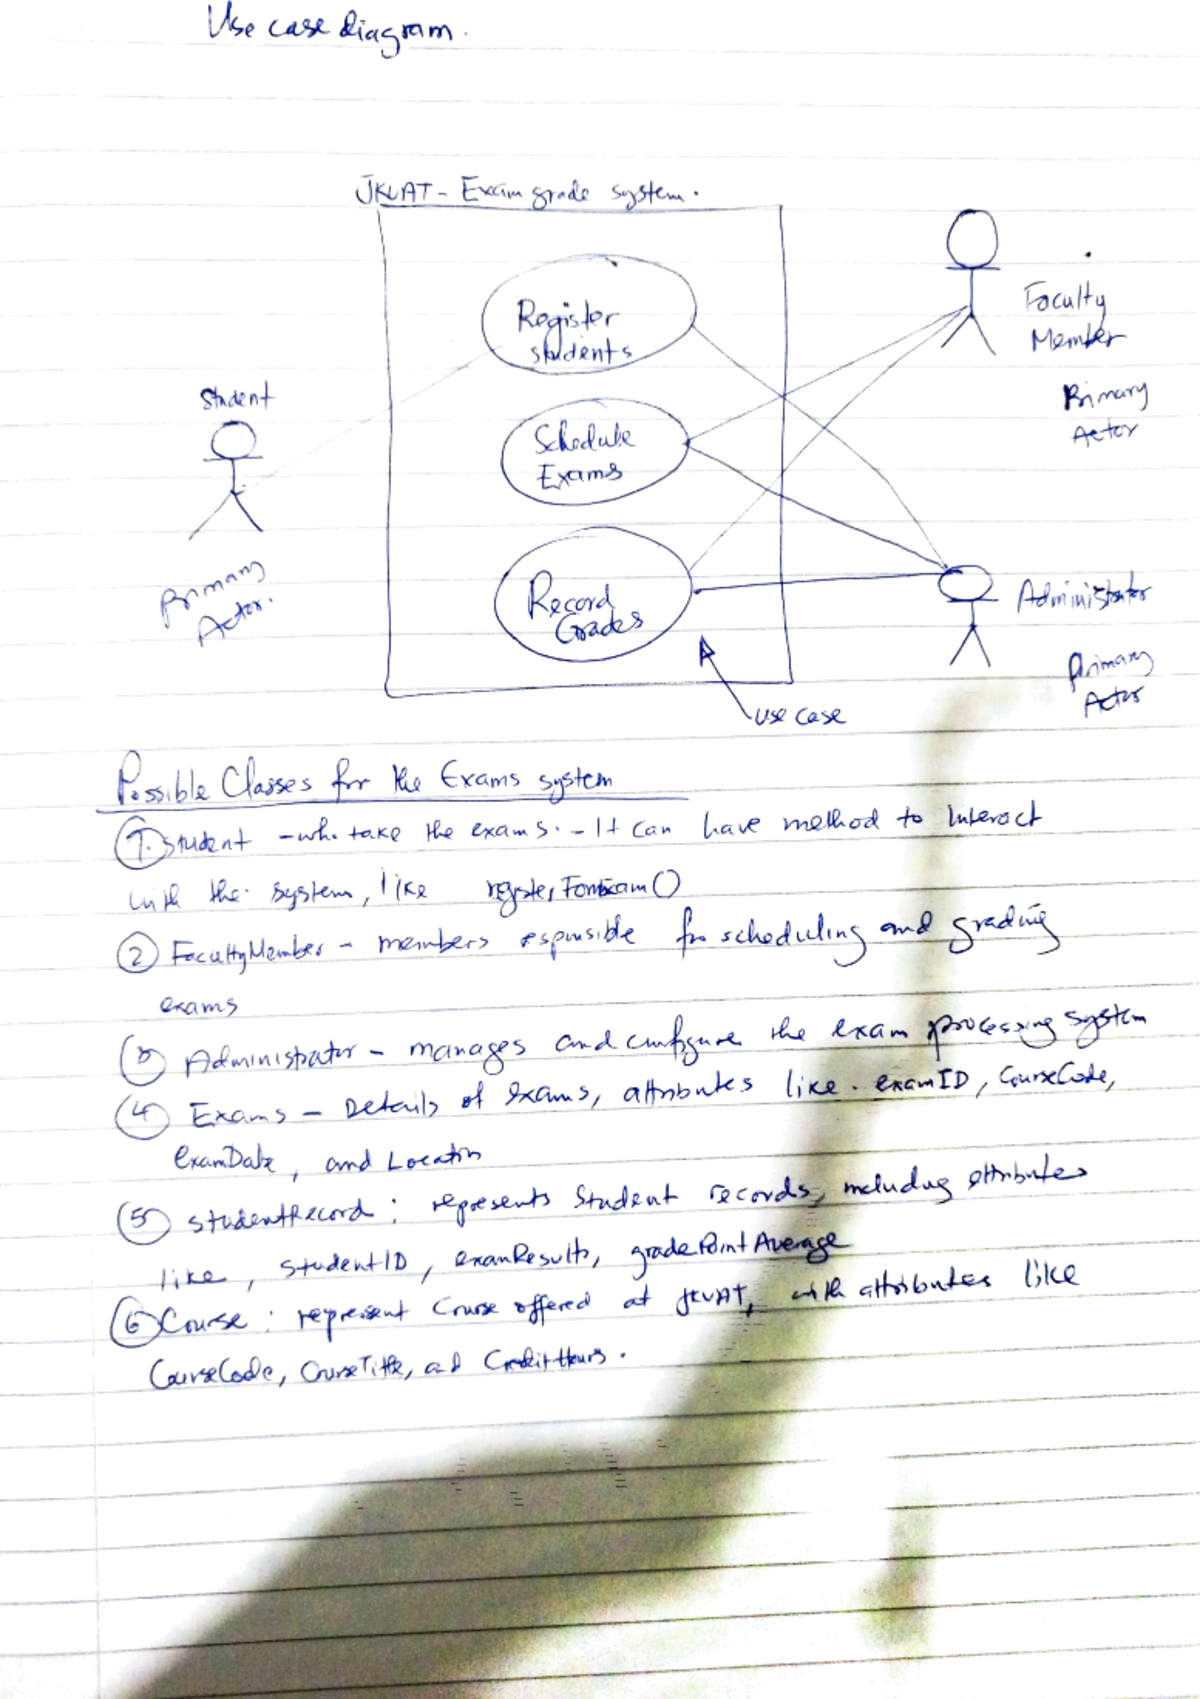 Use case diagram.
JKUAT - Exam grade system.
Register
students
Schedule
Exams
Record
Grades
Student
Primary
Actor.
Faculty
Member
Primary
Actor
Administrator
Primary
Actor
use case
Possible Classes for the Exams system
1. Student - who take the exams. - It can have method to Interact
with the system, like registerForExam()
2 FacultyMember - members responsible for scheduling and grading
exams
3 Administrator - manages and configure the exam processing system
4 Exams - Details of exams, attributes like. examID, CourseCode,
ExamDate, and Location
5 studentRecord : represents Student records, including attributes
like, studentID, examResults, gradePointAverage
6 Course : represent Course offered at JKUAT, with attributes like
CourseCode, CourseTitle, and CreditHours.